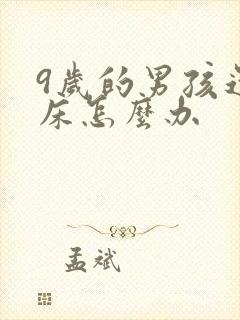 9歲的男孩
床怎麼办
孟斌